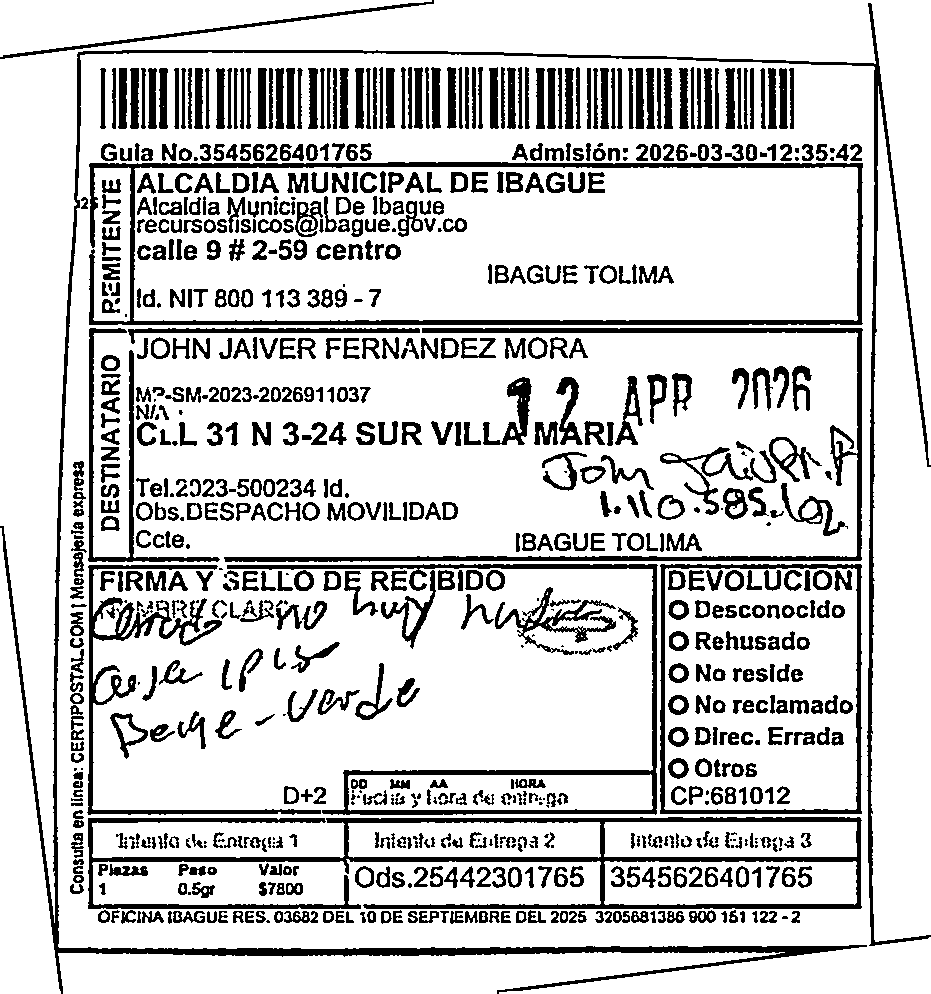 Guia No.3545626401765 Admisión: 2026-03-30-12:35:42
REMITENTE
ALCALDIA MUNICIPAL DE IBAGUE
Alcaldia Municipal De Ibague
recursosfisicos@ibague.gov.co
calle 9 # 2-59 centro
IBAGUE TOLIMA
Id. NIT 800 113 389 - 7
DESTINATARIO
JOHN JAIVER FERNANDEZ MORA
MP-SM-2023-2026911037
N/A
12 APR 2026
CLL 31 N 3-24 SUR VILLA MARIA
John Jaiver. F
1.110.585.102
Tel.2023-500234 Id.
Obs.DESPACHO MOVILIDAD
Ccte.
IBAGUE TOLIMA
FIRMA Y SELLO DE RECIBIDO
NOMBRE CLARO
no hay
casa 1 piso
Beige - verde
D+2
DD MM AA HORA
Fecha y hora de entrega
DEVOLUCION
Desconocido
Rehusado
No reside
No reclamado
Direc. Errada
Otros
CP:681012
Intento de Entrega 1 Intento de Entrega 2 Intento de Entrega 3
Piezas Peso Valor
1 0.5gr $7800
Ods.25442301765 3545626401765
OFICINA IBAGUE RES. 03682 DEL 10 DE SEPTIEMBRE DEL 2025 3205681386 900 151 122 - 2
Consulta en linea: CERTIPOSTAL.COM | Mensajeria expresa